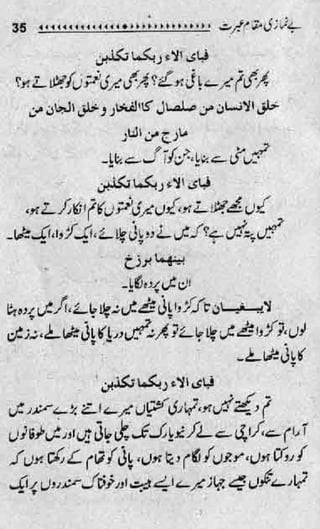 بے نمازی مقام عبرت 35
فبای الاء ربکما تکذبن
پھر بھی تم میرے باغی ہو گئے؟ پھر بھی میری نعمتوں کو جھٹلاتے ہو؟
خلق الانسان من صلصال کاالفخار و خلق الجان من
مارج من النار
تمہیں مٹی سے بنایا، جن کو آگ سے بنایا۔
فبای الاء ربکما تکذبن
کیوں مجھے جھٹلاتے ہو، کیوں میری نعمتوں کا تم انکار کرتے ہو،
تمہیں پتہ نہیں ہے؟ کہ میں نے دو پانی چلائے، ایک کڑوا، ایک میٹھا۔
بینھما برزخ
ان میں پردہ لگایا۔
لایبغیان تا کہ کڑوا پانی میٹھے میں نہ چلا جائے، اگر میں پردہ ہٹا
لوں، تو کڑوا میٹھے میں چلا جائے تو پھر نہ تمہیں دریا کا پانی میٹھا ملے، نہ زمین
کا پانی میٹھا ملے۔
فبای الاء ربکما تکذبن
تم دیکھتے نہیں ہو، تمہاری کشتیاں میرے اتنے بڑے سمندر میں
آرام سے، کراچی سے لے کر نیویارک تک چلی جاتی ہیں اور میں طوفانوں
کو روکتا ہوں، موجوں کو لگام دیتا ہوں، پانی کو تھام کے رکھتا ہوں کہ
تمہارے تنکوں جیسے جہاز میرے ایسے ہیبت اور خوفناک سمندروں پر ایک